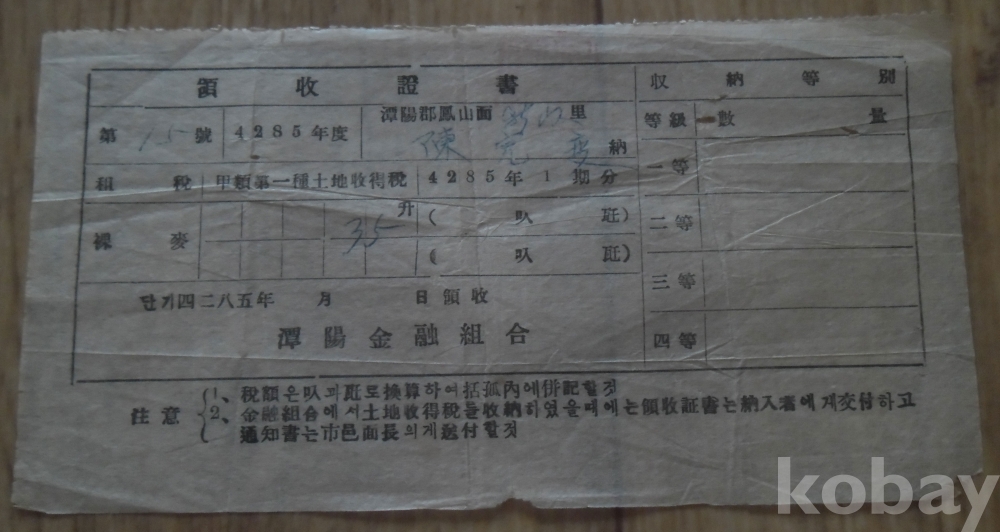 領收證書
第 15 號 4285年度 潭陽郡鳳山面 里
陳 納
租稅 甲類第一種土地收得稅 4285年1期分
裸麥 35 升 ( 叺 瓩)
( 叺 瓩)
단기四二八五年 月 日領收
潭陽金融組合
収納等別
等級 數量
一等
二等
三等
四等
注意
1、稅額은叺과瓩로換算하여括孤內에倂記할것
2、金融組合에서土地收得稅를收納하였을때에는領收証書는納入者에게交付하고
通知書는市邑面長의게送付할것
kobay